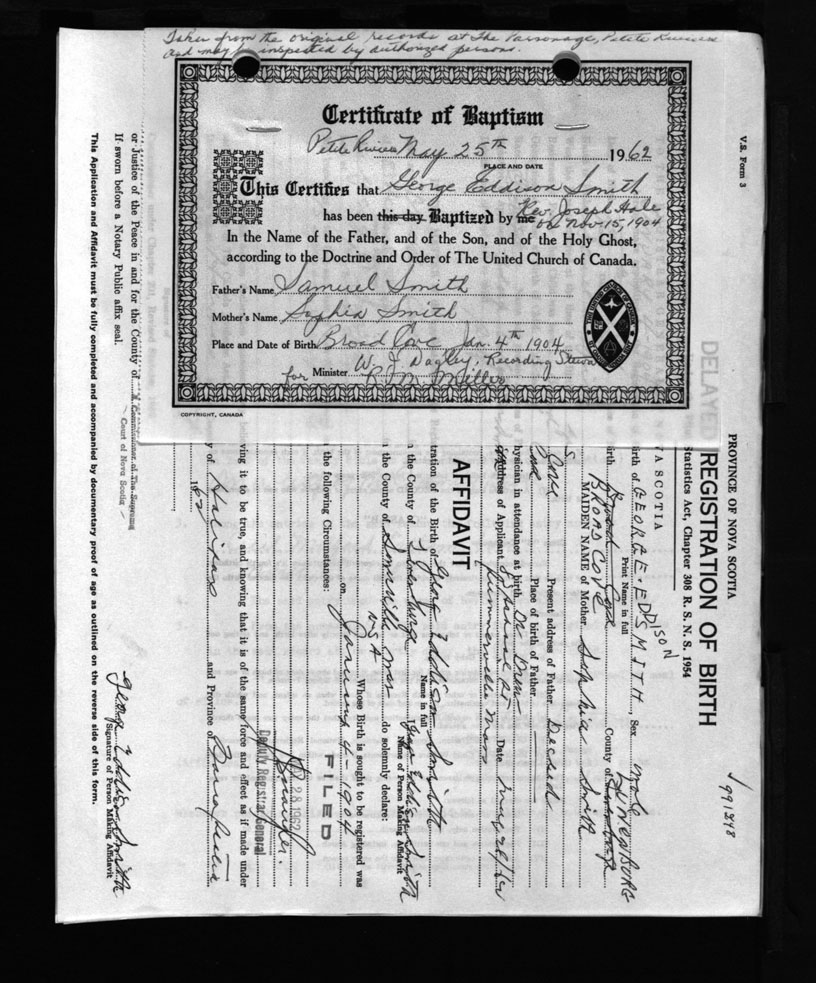 Taken from the original records at The Parsonage, Petite Riviere
and may be inspected by authorized persons.
Certificate of Baptism
Petite Riviere May 25th 1962
PLACE AND DATE
This Certifies that George Eddison Smith
has been this day Baptized by me Rev. Joseph Hale
on Nov 15, 1904
In the Name of the Father, and of the Son, and of the Holy Ghost,
according to the Doctrine and Order of The United Church of Canada.
Father's Name Samuel Smith
Mother's Name Sophia Smith
Place and Date of Birth Broad Cove Jan. 4th 1904
W. F. Dagley, Recording Steward
for Minister R M Miller
COPYRIGHT, CANADA
V.S. Form 3
991248
PROVINCE OF NOVA SCOTIA
DELAYED REGISTRATION OF BIRTH
Statistics Act, Chapter 308 R. S. N. S. 1954
A SCOTIA
irth of GEORGE EDDISON SMITH, Sex male
Print Name in full
LUNENBURG
irth Broad Cove County of Lunenburg
BROAD COVE
MAIDEN NAME of Mother Sophia Smith
Cove Present address of Father Decised
Place of birth of Father
hysician in attendance at birth Dr Drew
Address of Applicant
Date
Summerville Mass
AFFIDAVIT
tration of the Birth of George Eddison Smith
Name in full
the County of Lunenburg I George Eddison Smith
Name of Person Making Affidavit
the County of Somerville Mass do solemnly declare:
USA
Whose Birth is sought to be registered was
on January 4 - 1904
the following Circumstances:
FILED
28 1962
Deputy Registrar General
ving it to be true, and knowing that it is of the same force and effect as if made under
y of Halifax and Province of Nova Scotia
1962
George Eddison Smith
Signature of Person Making Affidavit
A Commissioner of The Supreme
Court of Nova Scotia
or Justice of the Peace in and for the County of
If sworn before a Notary Public affix seal.
This Application and Affidavit must be fully completed and accompanied by documentary proof of age as outlined on the reverse side of this form.